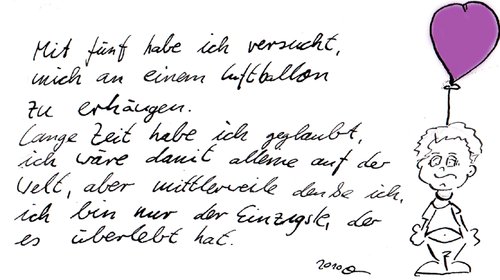 Mit fünf habe ich versucht,
mich an einem Luftballon
zu erhängen.
Lange Zeit habe ich geglaubt,
ich wäre damit alleine auf der
Welt, aber mittlerweile denke ich,
ich bin nur der Einzigste, der
es überlebt hat.
2010